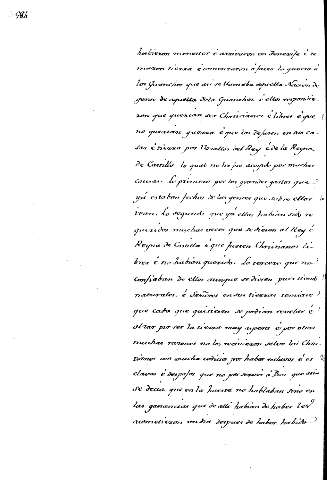 hubieron menester é arrivaron en Tenerife é se
á los Guanches que asi se llamaba aquella Nacion de
gente de aquella Isla Guanches é ellos respondie
ron que querian ser Christianos é libres é que
no querian guerra é que los dejasen en sus ca
sas é tierra por Vasallos del Rey é de la Reyna
de Castilla lo qual no les fue otorgado por muchas
causas. Lo primero por los grandes gastos que
ya estaban fechos de las gentes que sobre ellos
venian. Lo segundo que ya ellos habian sido re
queridos muchas veces que se diesen al Rey é
Reyna de Castilla é que fuesen Christianos li
bres é no habian querido. Lo tercero que no
confiaban de ellos aunque se diesen
naturales é Señores en sus tierras
que cada que quisiesen se podrian revelar é
alzar por ser la tierra muy aspera é por otras
muchas razones no los recivieron salvo los Chris
tianos con mucha codicia por haber esclavos é es
clavas é despojos que no por servir á Dios que asi
se decia que en la hueste no hablaban sino en
las ganancias que de alli habian de haber
despues de haber habido